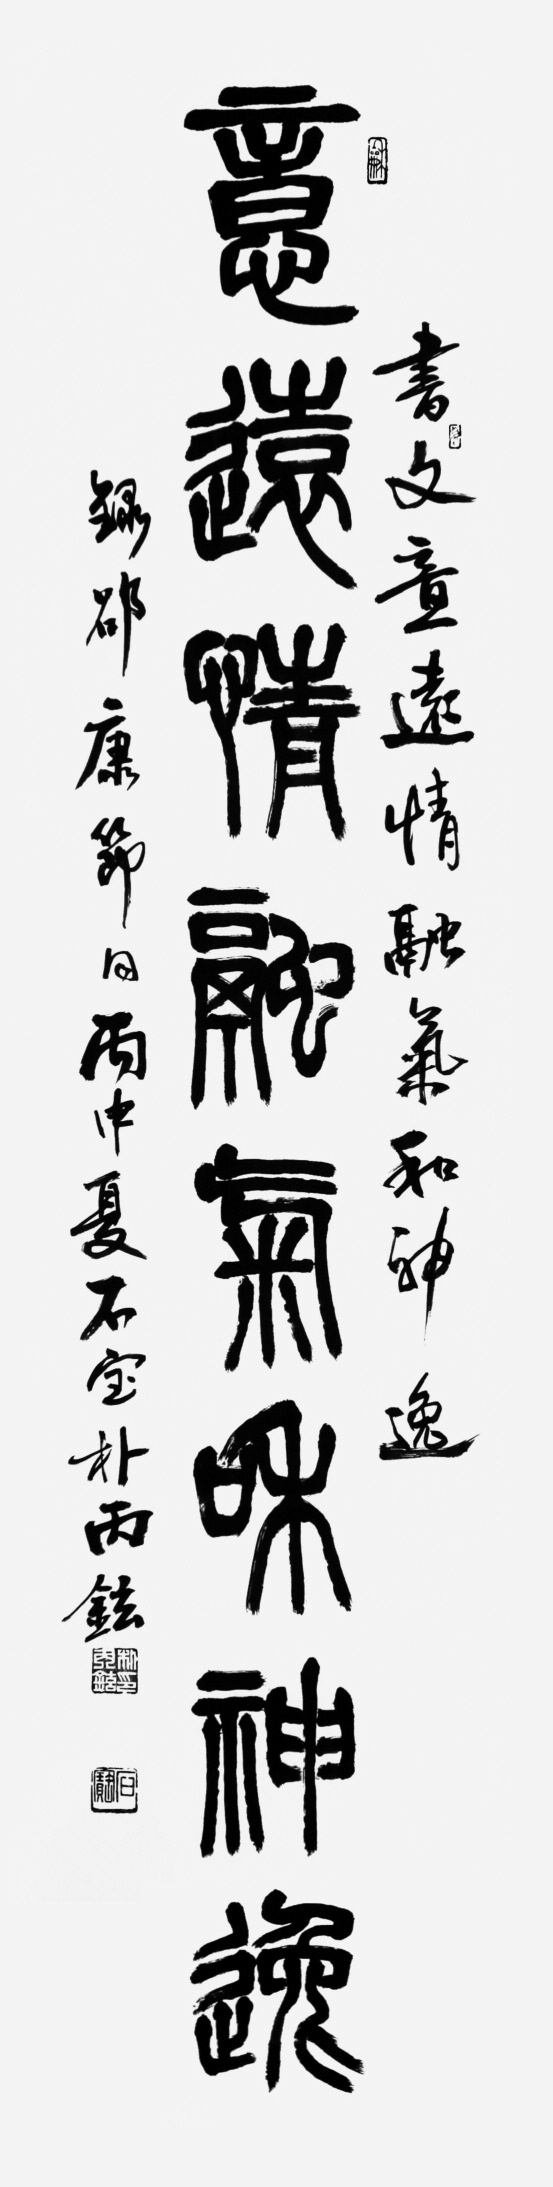 書文意遠情融氣和神逸
意遠情融氣和神逸
錄邵康節句丙申夏石宝朴丙鉉
石寶